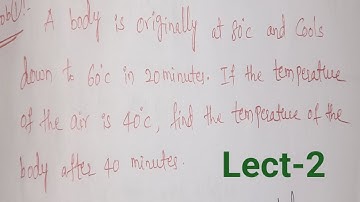 A body is originally at 80°c and Cools
down to 60°c in 20minutes. If the temperature
of the air is 40°c, find the temperature of the
body after 40 minutes.
Lect-2